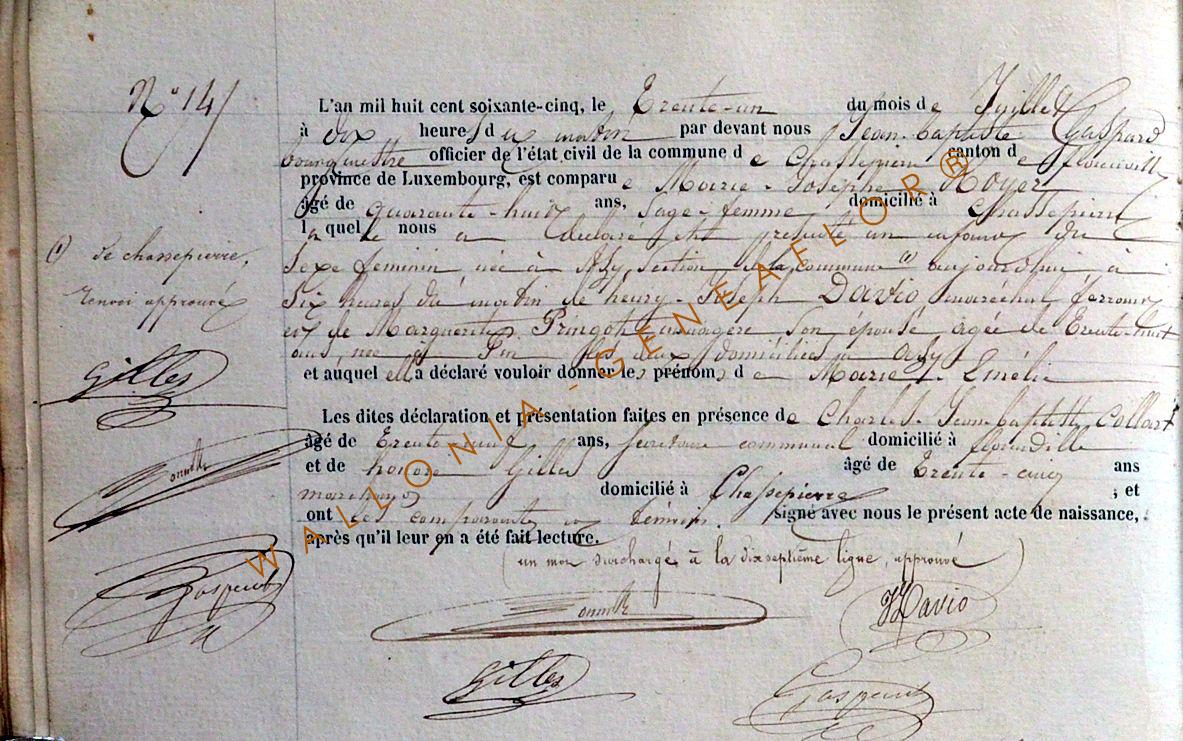 N° 14/
L'an mil huit cent soixante-cinq, le Trente-un du mois de Juillet
à dix heures du matin par devant nous Jean-Baptiste Gaspard
bourgmestre officier de l'état civil de la commune de Chassepierre canton de Florenville
province de Luxembourg, est comparue Marie-Josephe Royer
âgé de quarante-huit ans, Sage-femme domicilié à Chassepierre
laquelle nous a déclaré et présenté un enfant du
(1) de chassepierre,
Sexe féminin née à Azy, Section de la commune (1) aujourd'hui, à
renvoi approuvé
Six heures du matin de henry-Joseph Davio maréchal ferrant
et de Marguerite Pringot ménagère son épouse agée de Trente-huit
ans, née à Pin les deux domiciliés à Azy
et auquel elle a déclaré vouloir donner les prénoms de Marie-Emélie
Gilles
Les dites déclaration et présentation faites en présence de Charles-Jean-baptiste Collart
âgé de Trente-neuf ans, Secrétaire communal domicilié à
et de honoré Gilles âgé de Trente-cinq ans
marchand domicilié à Chassepierre ; et
ont les comparants et témoins signé avec nous le présent acte de naissance,
après qu'il leur en a été fait lecture.
(un mot surchargé à la dixseptième ligne, approuvé)
Davio
Gilles
WALLONIA-GENEAFLOR®